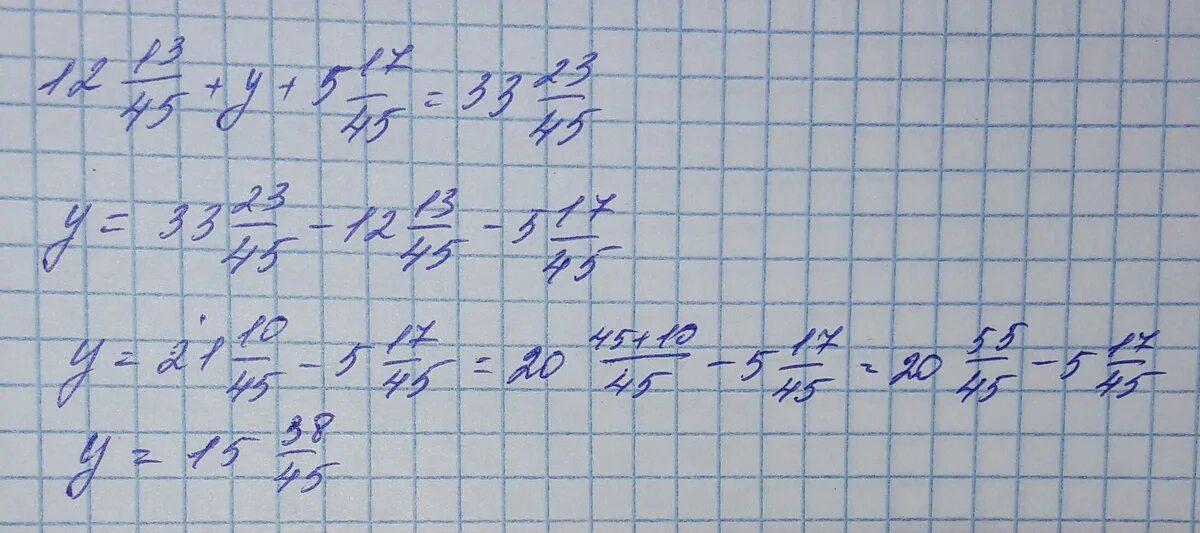 12 13/45 + y + 5 17/45 = 33 23/45
y = 33 23/45 - 12 13/45 - 5 17/45
y = 21 10/45 - 5 17/45 = 20 45+10/45 - 5 17/45 = 20 55/45 - 5 17/45
y = 15 38/45